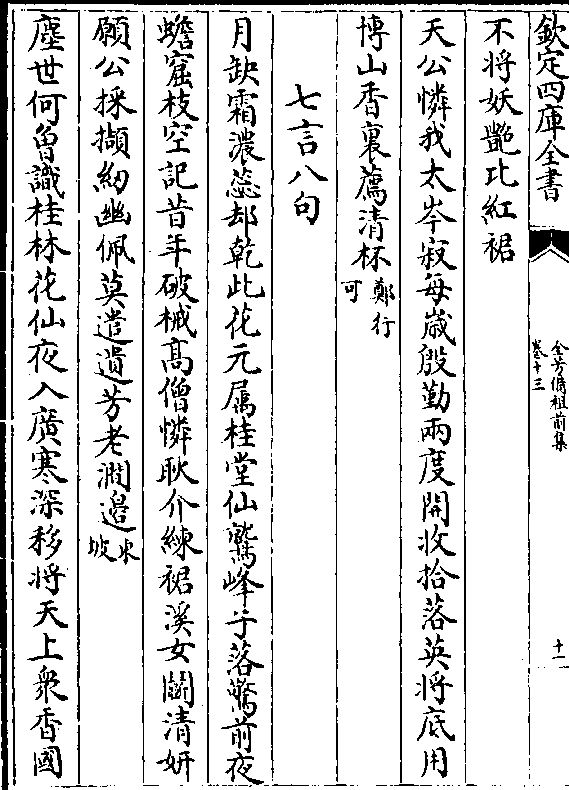 欽定四庫全書
全芳備祖前集
卷十三
十一
不將妖艷比紅裙
天公憐我太岑寂每歲殷勤兩度開收拾落英將底用
博山香裏薦清杯鄭行
可
七言八句
月缺霜濃蕊却乾此花元屬桂堂仙鷲峰子落驚前夜
蟾窟枝空記昔年破械髙僧憐耿介練裙溪女鬭清妍
願公採擷紉幽佩莫遣遺芳老澗邉東
坡
塵世何曾識桂林花仙夜入廣寒深移將天上衆香國